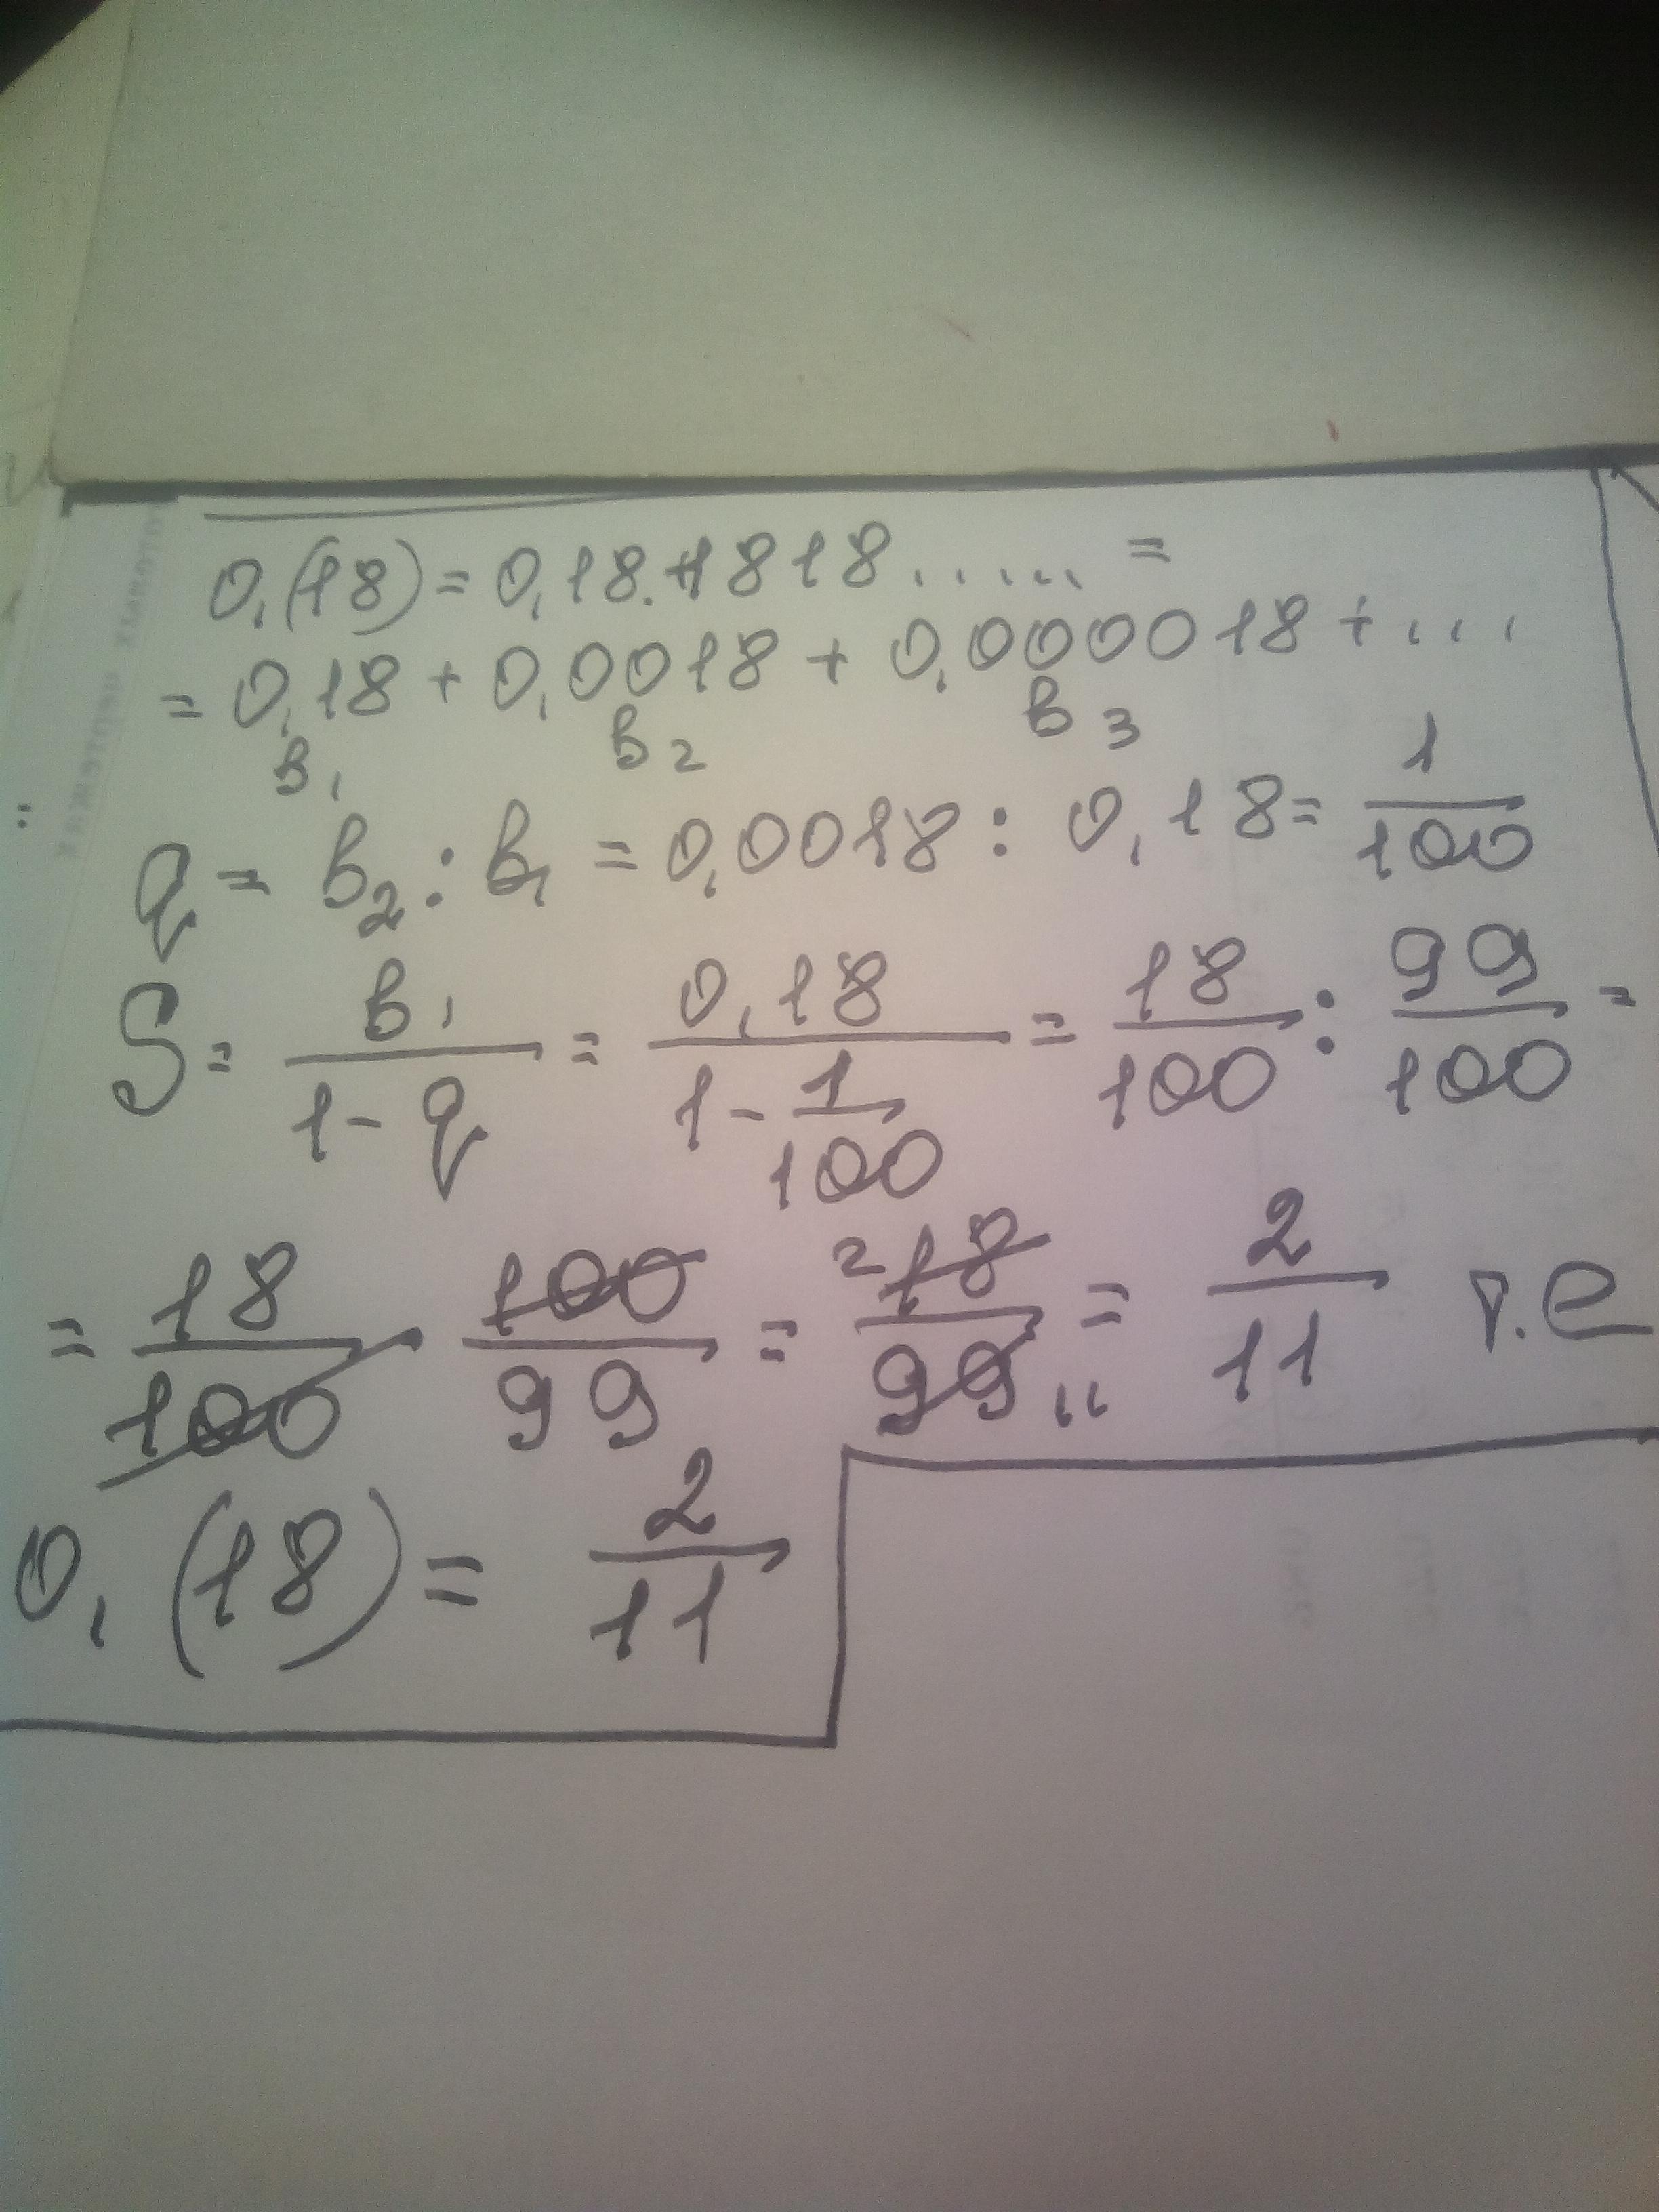 0,(18) = 0,18.1818..... =
= 0,18 + 0,0018 + 0,000018 + ...
в1 в2 в3
q = в2 : в1 = 0,0018 : 0,18 = 1/100
S = в1/(1-q) = 0,18/(1 - 1/100) = 18/100 : 99/100 =
= 18/100 · 100/99 = 2 18/99 11 = 2/11 т.е
0,(18) = 2/11